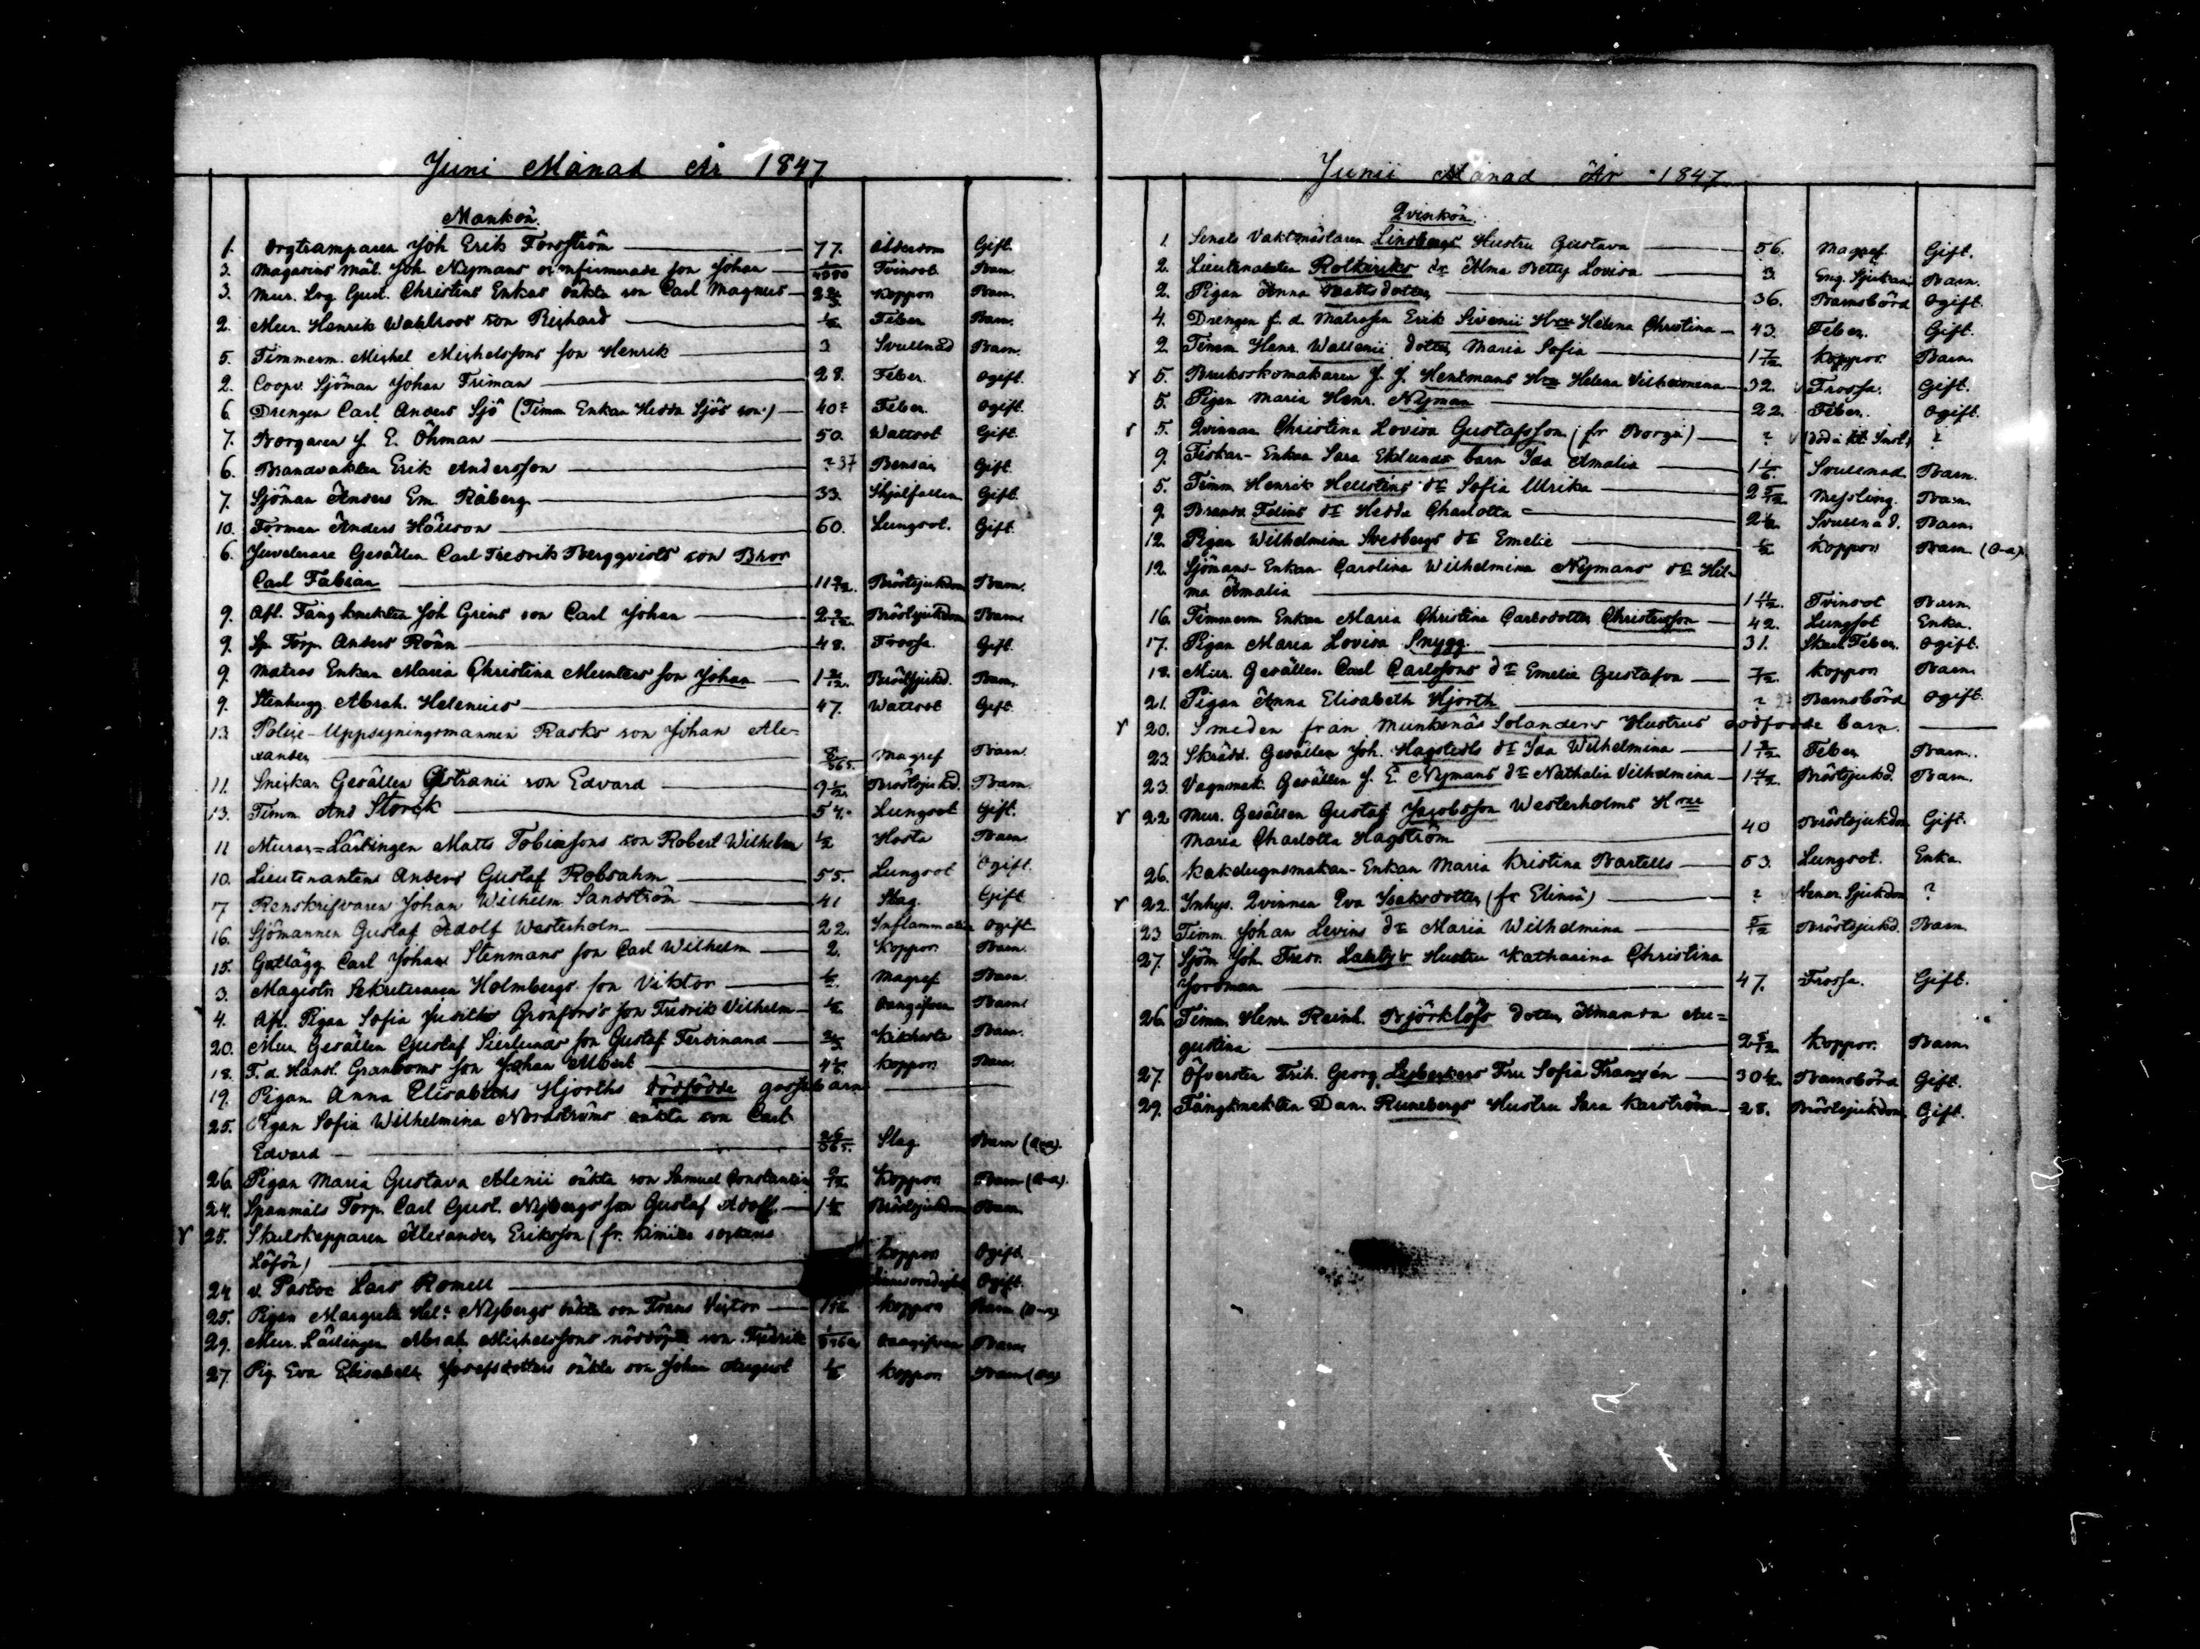 Juni Månad År 1847
Mankön.
1. Orgtramparen Joh Erik Forsström 77. Ålderdom Gift.
3. Magasins Mät. Joh Nymans son Johan Tvinsot Barn
3. Mur. Lrg Gust. Christins Enkas oäkta son Carl Magnus 2 Koppor Barn.
2. Mur. Henrik Wahlroos son Richard ½ Feber Barn.
5. Timmerm. Michel Michelssons son Henrik 3 Svullnad Barn.
2. Coopv. Sjöman Johan Friman 28. Feber. Ogift.
6 Drengen Carl Anders Sjö (Timm Enkan Hedda Sjös son.) 40? Feber. Ogift.
7. Borgaren J. E. Öhman 50. Wattsot Gift.
6. Brandvakten Erik Andersson ?37 Bensår Gift
7. Sjöman Anders Em. Råberg 33. Gift.
10. Forman Anders Hällson 60. Lungsot. Gift
6. Juvelerare Gesällen Carl Fredrik Bergqvists son Bror
Carl Fabian 11 Bröstsjukdom Barn.
9. Afl. Fångknekten Joh Greins son Carl Johan 2 Bröstsjukdom Barn
9. Sp Torp. Anders Rönn 48. Frossa. Gift
9. Matros Enkan Maria Christina Munters son Johan 1 Bröstsjukd. Barn.
9. Stenhugg Abrah. Helenius 47. Wattsot Gift.
13 Polise-Uppsyningsmannen Rasks son Johan Ale=
xander 8/365. Magref Barn.
11. Snickar Gesällen son Edvard 9 Bröstsjukd. Barn.
13. Timm And Storck 54. Lungsot Gift.
11 Murar=Lärlingen Matts Tobiassons son Robert Wilhelm ½ Hosta Barn
10. Lieutenanten Anders Gustaf Robsahm 55. Lungsot Ogift.
7 Renskrifvaren Johan Wilhelm Sandström 41 Slag. Gift
16. Sjömannen Gustaf Adolf Westerholm 22. Inflammation Ogift.
15. Gatlägg Carl Johan Stenmans son Carl Wilhelm 2. Koppor. Barn.
3. Magistr Sekreteraren Holmbergs son Viktor Magref. Barn
4. Afl. Pigan Sofia Judiths Gronfors's son Fredrik Vilhelm ½ Oangifven Barn
20. Mur. Gesällen Gustaf Sierlunds son Gustaf Ferdinand Kikhosta Barn.
18. F.d. Handl. Granboms son Johan Albert Koppor Barn.
19. Pigan Anna Elisabeths Hjorths dödfödde gossebarn
25. Pigan Sofia Wilhelmina Nordströms oäkta son Carl
Edvard 26/365. Slag Barn (o-a).
26. Pigan Maria Gustava Alenii oäkta son Samuel Constantin Koppor Barn (o-a).
24. Spanmåls Torp. Carl Gust. Nybergs son Gustaf Adolf 1½ Bröstsjukdom Barn.
25. Skutskepparen Alexander Eriksson (fr. Kimito sockens
Löfön) Koppor Ogift.
24 v. Pastor Lars Romell Ogift.
25. Pigan Margreta Hel. Nybergs oäkta son Frans Victor Koppor Barn (o-a)
29. Mur. Lärlingen Abrah Michelssons nöddöpte son Fredrik Oangifven Barn
27. Pig. Eva Elisabeth Josefsdotters oäkta son Johan August ½ Koppor. Barn (oa)
Junii Månad År 1847
Qvinkön.
1. Senats Vaktmästaren Lindbergs Hustru Gustava 56. Magref. Gift.
2. Lieutenanten Rotkirks dr Alma Betty Lovisa 3 Eng. Sjukan Barn.
2. Pigan Anna Mattsdotter 36. Barnsbörd Ogift.
4. Drengen f.d. Matrosen Erik Sivenii Hru Helena Christina 43. Feber. Gift.
2 Timm Henr. Wallenii dotter Maria Sofia 1 7/12. Koppor. Barn
5. Bruksskomakaren J. J. Hentmans Hru Helena Vilhelmina 32. Frossa. Gift.
5. Pigan Maria Henr. Nyman 22. Feber. Ogift.
5. Qvinnan Christina Lovisa Gustafsson (fr Borgå) ? ?
9. Fiskar-Enkan Sara Eklunds barn Ida Amalia 1 1/6. Svullnad Barn.
5. Timm Henrik Hellstens dr Sofia Ulrika 2 5/12 Messling. Barn
9. Brandv Felins dr Hedda Charlotta 2½. Svullnad. Barn.
12. Pigan Wilhelmina Svedbergs dr Emelie ½ Koppor Barn (o-a)
12. Sjömans-Enkan Carolina Wilhelmina Nymans dr Hil-
ma Amalia 1 11/12. Tvinsot Barn.
16. Timmerm Enkan Maria Christina Carlsdotter Christersson 42. Lungsot Enka.
17. Pigan Maria Lovisa Snygg. 31. Skarl.Feber. Ogift.
18. Mur. Gesällen Carl Carlssons dr Emelie Gustafva 7/12. Koppor Barn
21. Pigan Anna Elisabeth Hjorth ? Barnsbörd Ogift.
20. Smeden från Munksnäs Solanders Hustrus dödfödde barn.
23 Skrädd. Gesällen Joh. Hagstedts dr Ida Wilhelmina 1 Feber Barn.
23. Vagnmak. Gesällen J. E. Nymans dr Nathalia Vilhelmina 1 Bröstsjukd. Barn.
22 Mur. Gesällen Gustaf Jacobsson Westerholms Hru
Maria Charlotta Hagström 40 Bröstsjukdom Gift.
26. Kakelugnsmakar-Enkan Maria Kristina Bartells 53. Lungsot. Enka.
22. Inhys. Qvinnan Eva Isaksdotter (fr Elimä) ? Vener. Sjukdom ?
23 Timm. Johan Levins dr Maria Wilhelmina 5/12 Bröstsjukd. Barn.
27. Sjöm Joh. Fredr. Hustru Katharina Christina
Jordman 47. Frossa. Gift.
26. Timm. Henr. Reinh. Björklöfs dotter Amanda Au=
gustina 2 5/12. Koppor. Barn.
27. Öfversten Frih. Georg Fru Sofia Franzén 30½. Barnsbörd Gift.
29. Fångknekten Dan. Runebergs Hustru Sara Karström 28. Bröstsjukdom Gift.